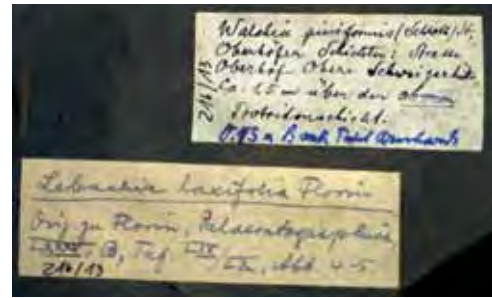 Walchia piniformis (Schloth.) St.
Oberhöfer Schichten; Straße
Oberhof - Obere Schweizerhütte
Ca. 1,5 m über der oberen
Protritonschicht.
216/13
Lebachia laxifolia Florin
Orig. zu Florin, Palaeontographica,
LXXXV, B, Taf.
Abb. 4-5.
216/13